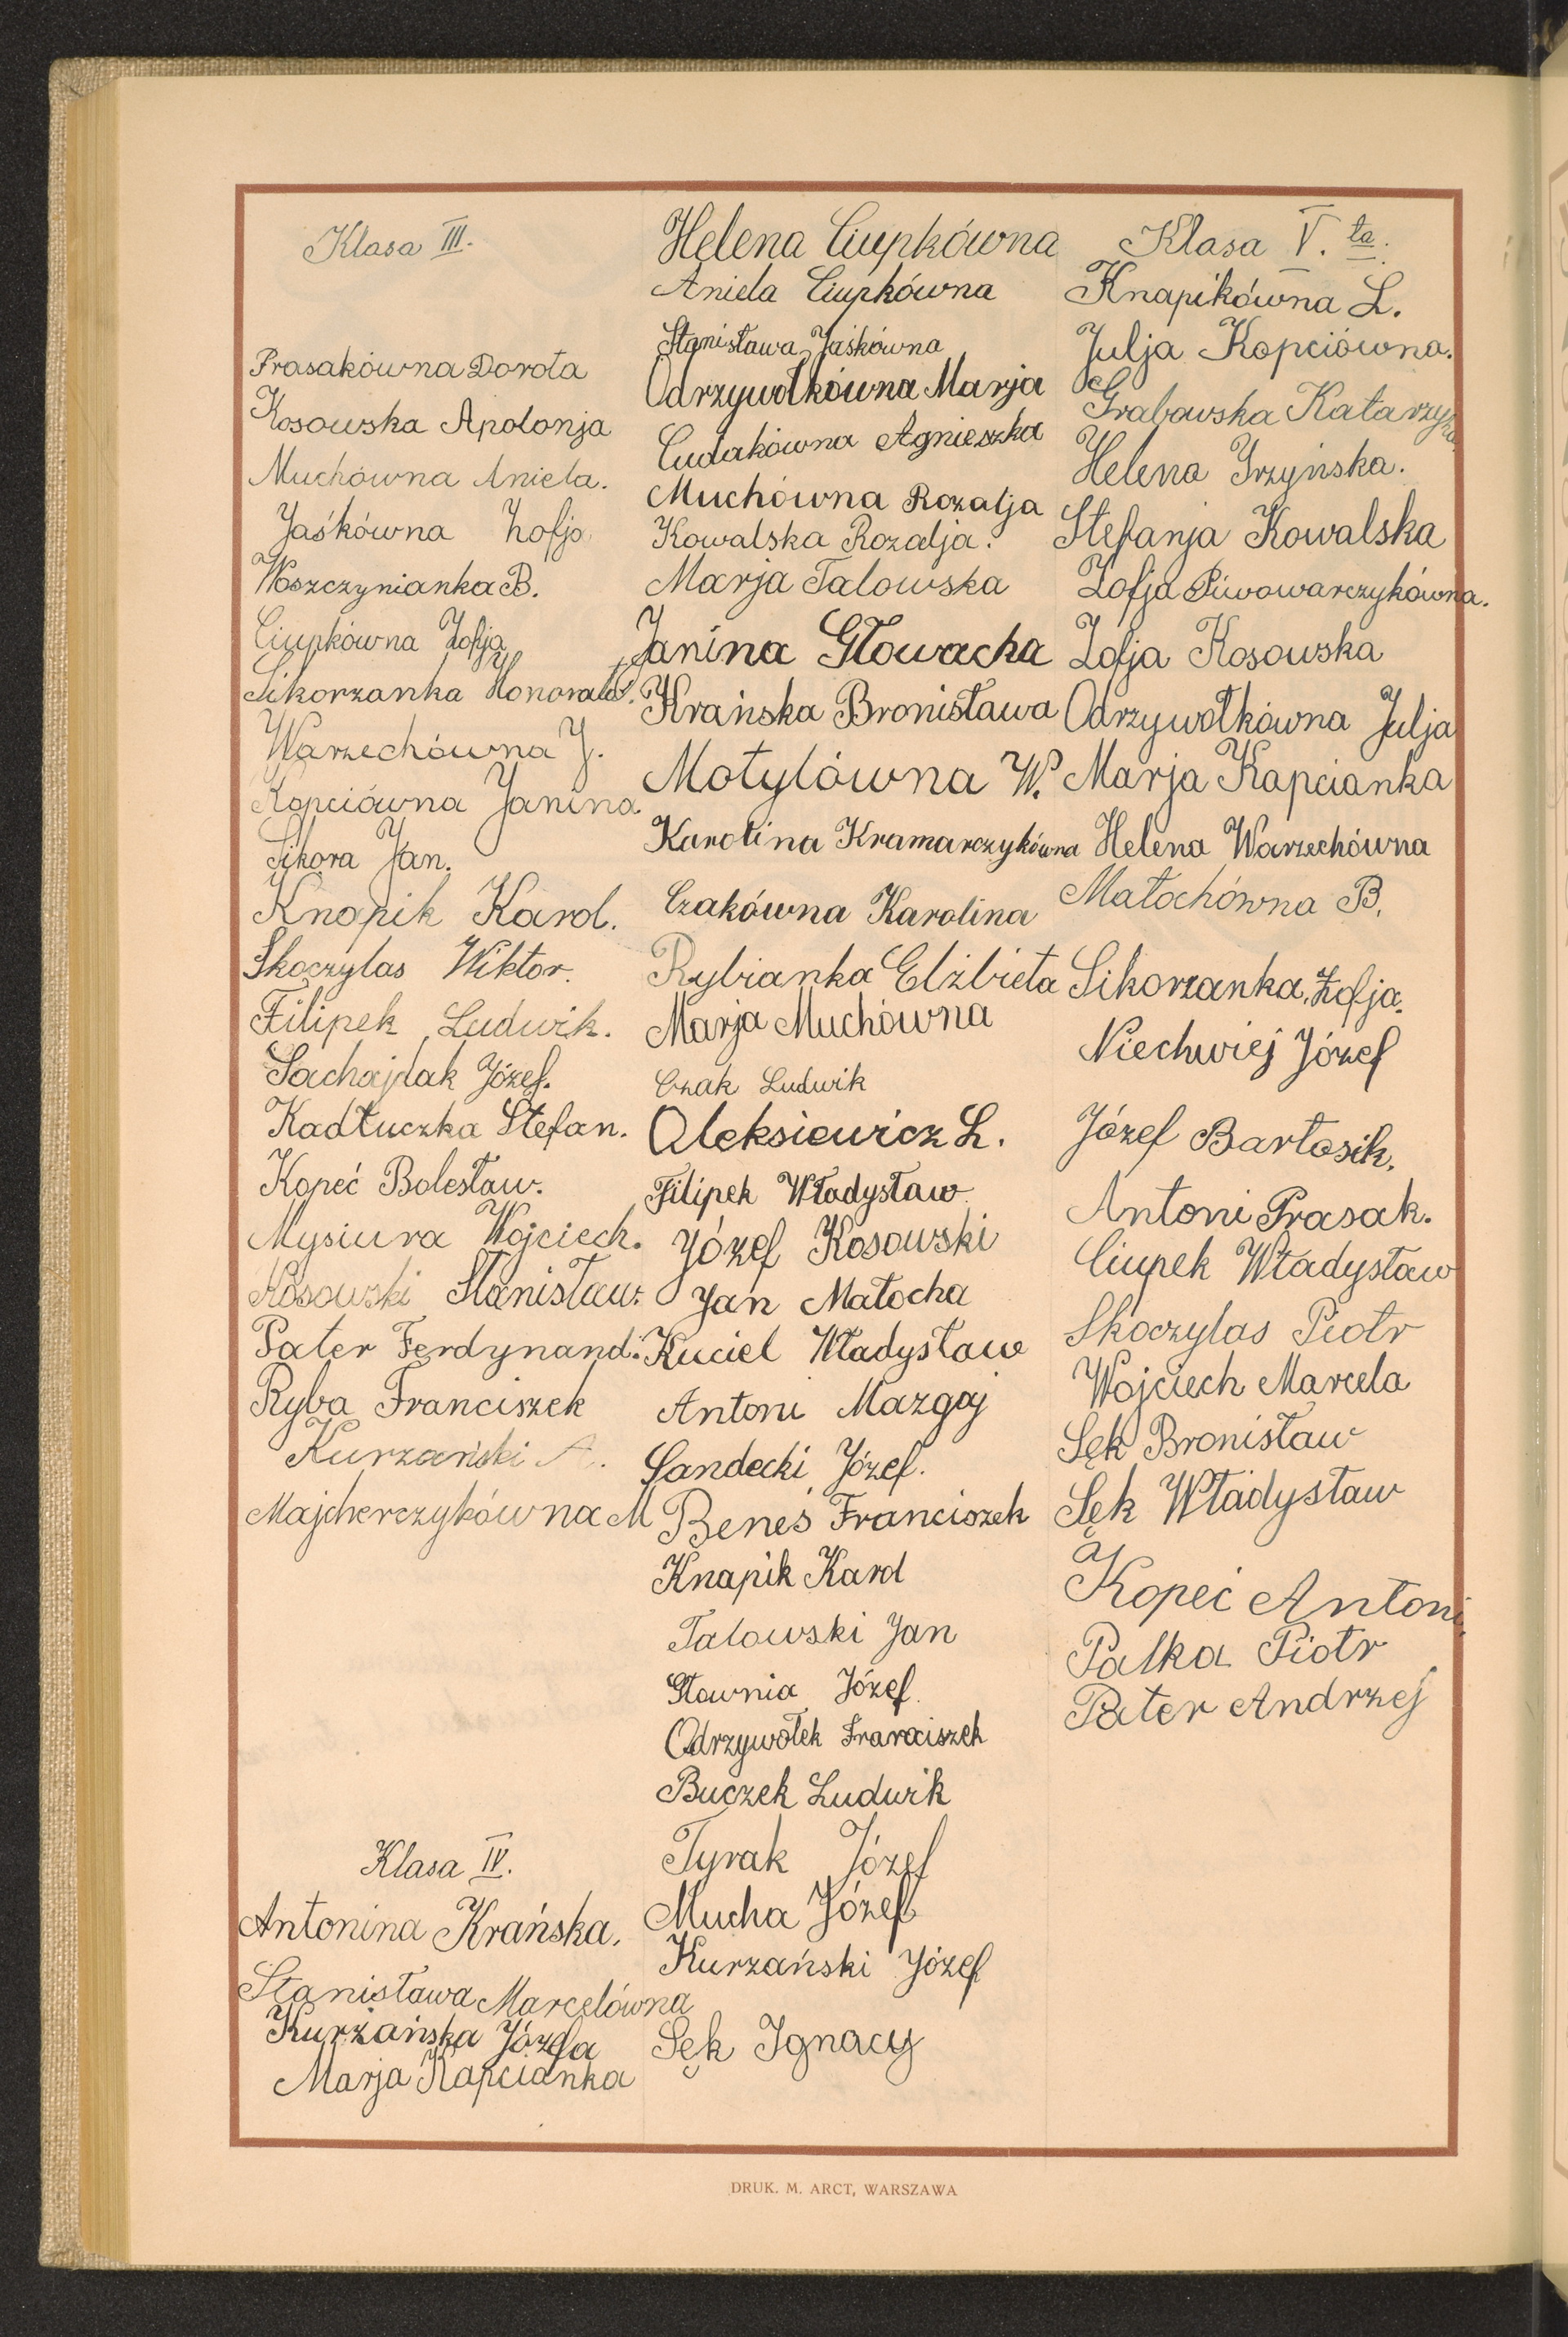 Klasa III.
Prasakówna Dorota
Kosowska Apolonja
Muchówna Aniela.
Jaśkówna Zofja
Woszczynianka B.
Ciupkówna Zofja
Sikorzanka Honorata.
Warzechówna J.
Kopciówna Janina.
Sikora Jan.
Knapik Karol.
Skoczylas Wiktor.
Filipek Ludwik.
Sachajdak Józef.
Kadłuczka Stefan.
Kopeć Bolesław.
Mysiura Wojciech.
Kosowski Stanisław.
Pater Ferdynand.
Ryba Franciszek
Kurzański A.
Majcherczykówna M
Klasa IV.
Antonina Krańska.
Stanisława Marcelówna
Kurzańska Józefa
Marja Kapcianka
Helena Ciupkówna
Aniela Ciupkówna
Stanisława Jaśkówna
Odrzywołkówna Marja
Cudakówna Agnieszka
Muchówna Rozalja
Kowalska Rozalja.
Marja Talowska
Janina Głowacka
Krańska Bronisława
Motylówna W.
Karolina Kramarczykówna
Czakówna Karolina
Rybianka Elżbieta
Marja Muchówna
Czak Ludwik
Aleksiewicz L.
Filipek Władysław
Józef Kosowski
Jan Matocha
Kuciel Władysław
Antoni Mazgaj
Sandecki Józef.
Beneś Franciszek
Knapik Karol
Talowski Jan
Głownia Józef.
Odrzywołek Franciszek
Buczek Ludwik
Tyrak Józef
Mucha Józef
Kurzański Józef
Sęk Ignacy
Klasa V.ta.
Knapikówna L.
Julja Kopciówna.
Grabowska Katarzyna
Helena Grzyńska.
Stefanja Kowalska
Zofja Piwowarczykówna.
Zofja Kosowska
Odrzywołkówna Julja
Marja Kapcianka
Helena Warzechówna
Matochówna B.
Sikorzanka Zofja.
Niechwiej Józef
Józef Bartosik.
Antoni Prasak.
Ciupek Władysław
Skoczylas Piotr
Wojciech Marcela
Sęk Bronisław
Sęk Władysław
Kopeć Antoni.
Palka Piotr
Pater Andrzej
DRUK. M. ARCT, WARSZAWA